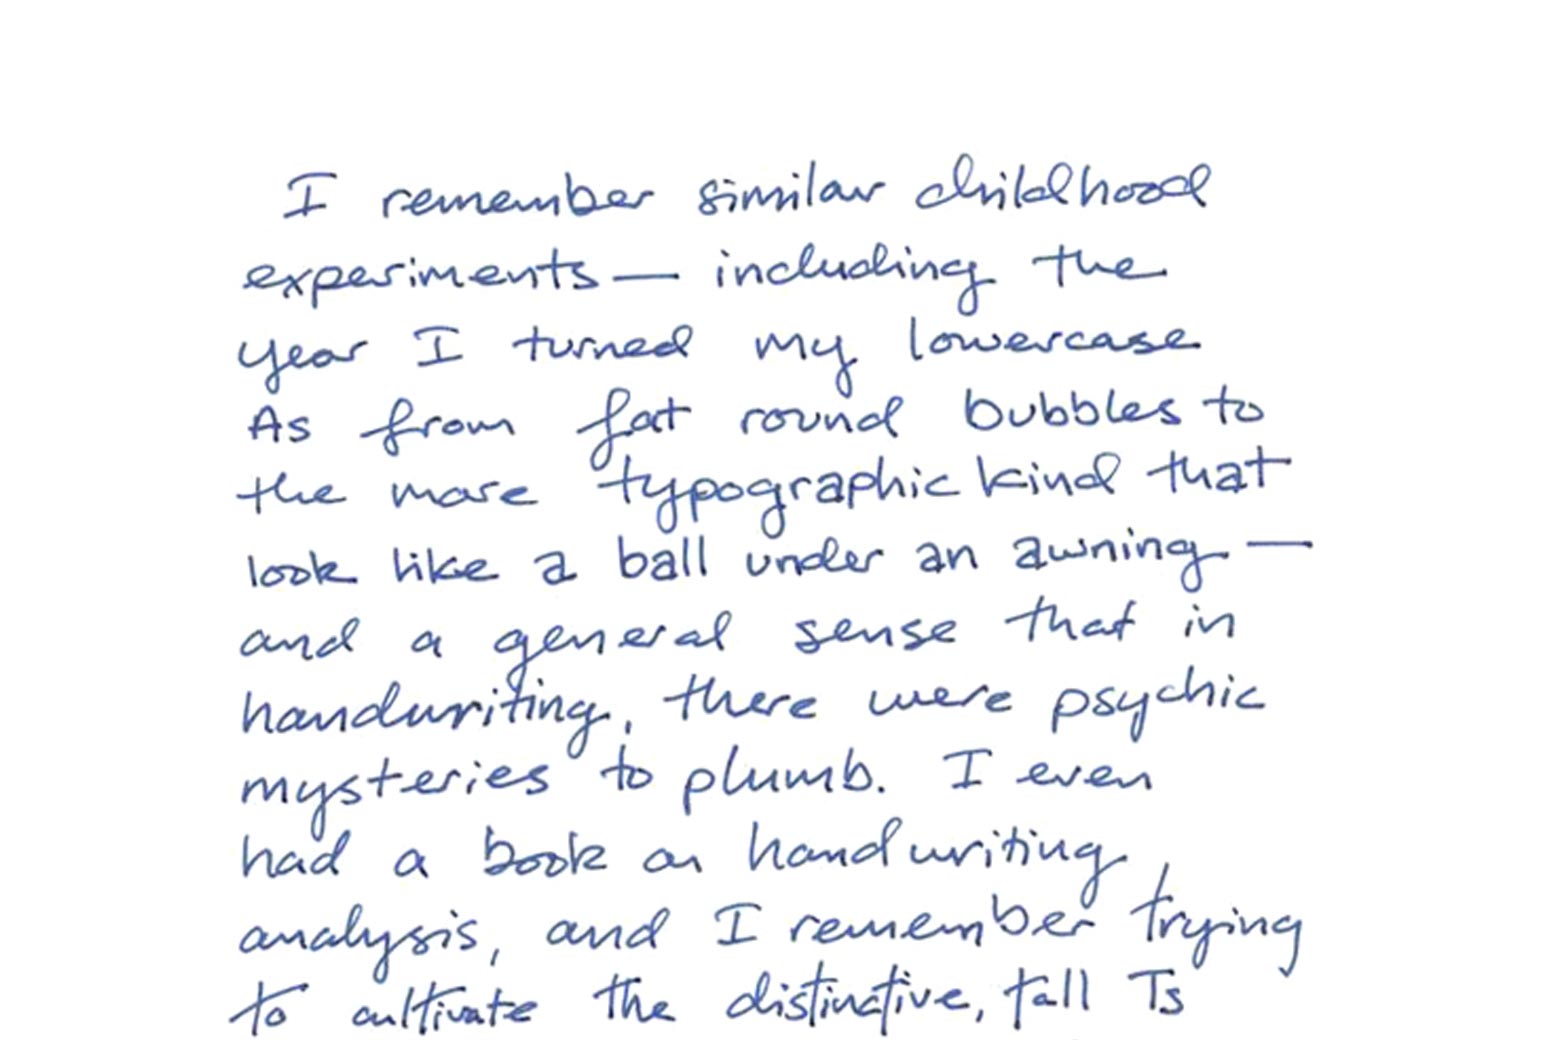 I remember similar childhood
experiments — including the
year I turned my lowercase
As from fat round bubbles to
the more typographic kind that
look like a ball under an awning —
and a general sense that in
handwriting, there were psychic
mysteries to plumb. I even
had a book on handwriting
analysis, and I remember trying
to cultivate the distinctive, tall Ts